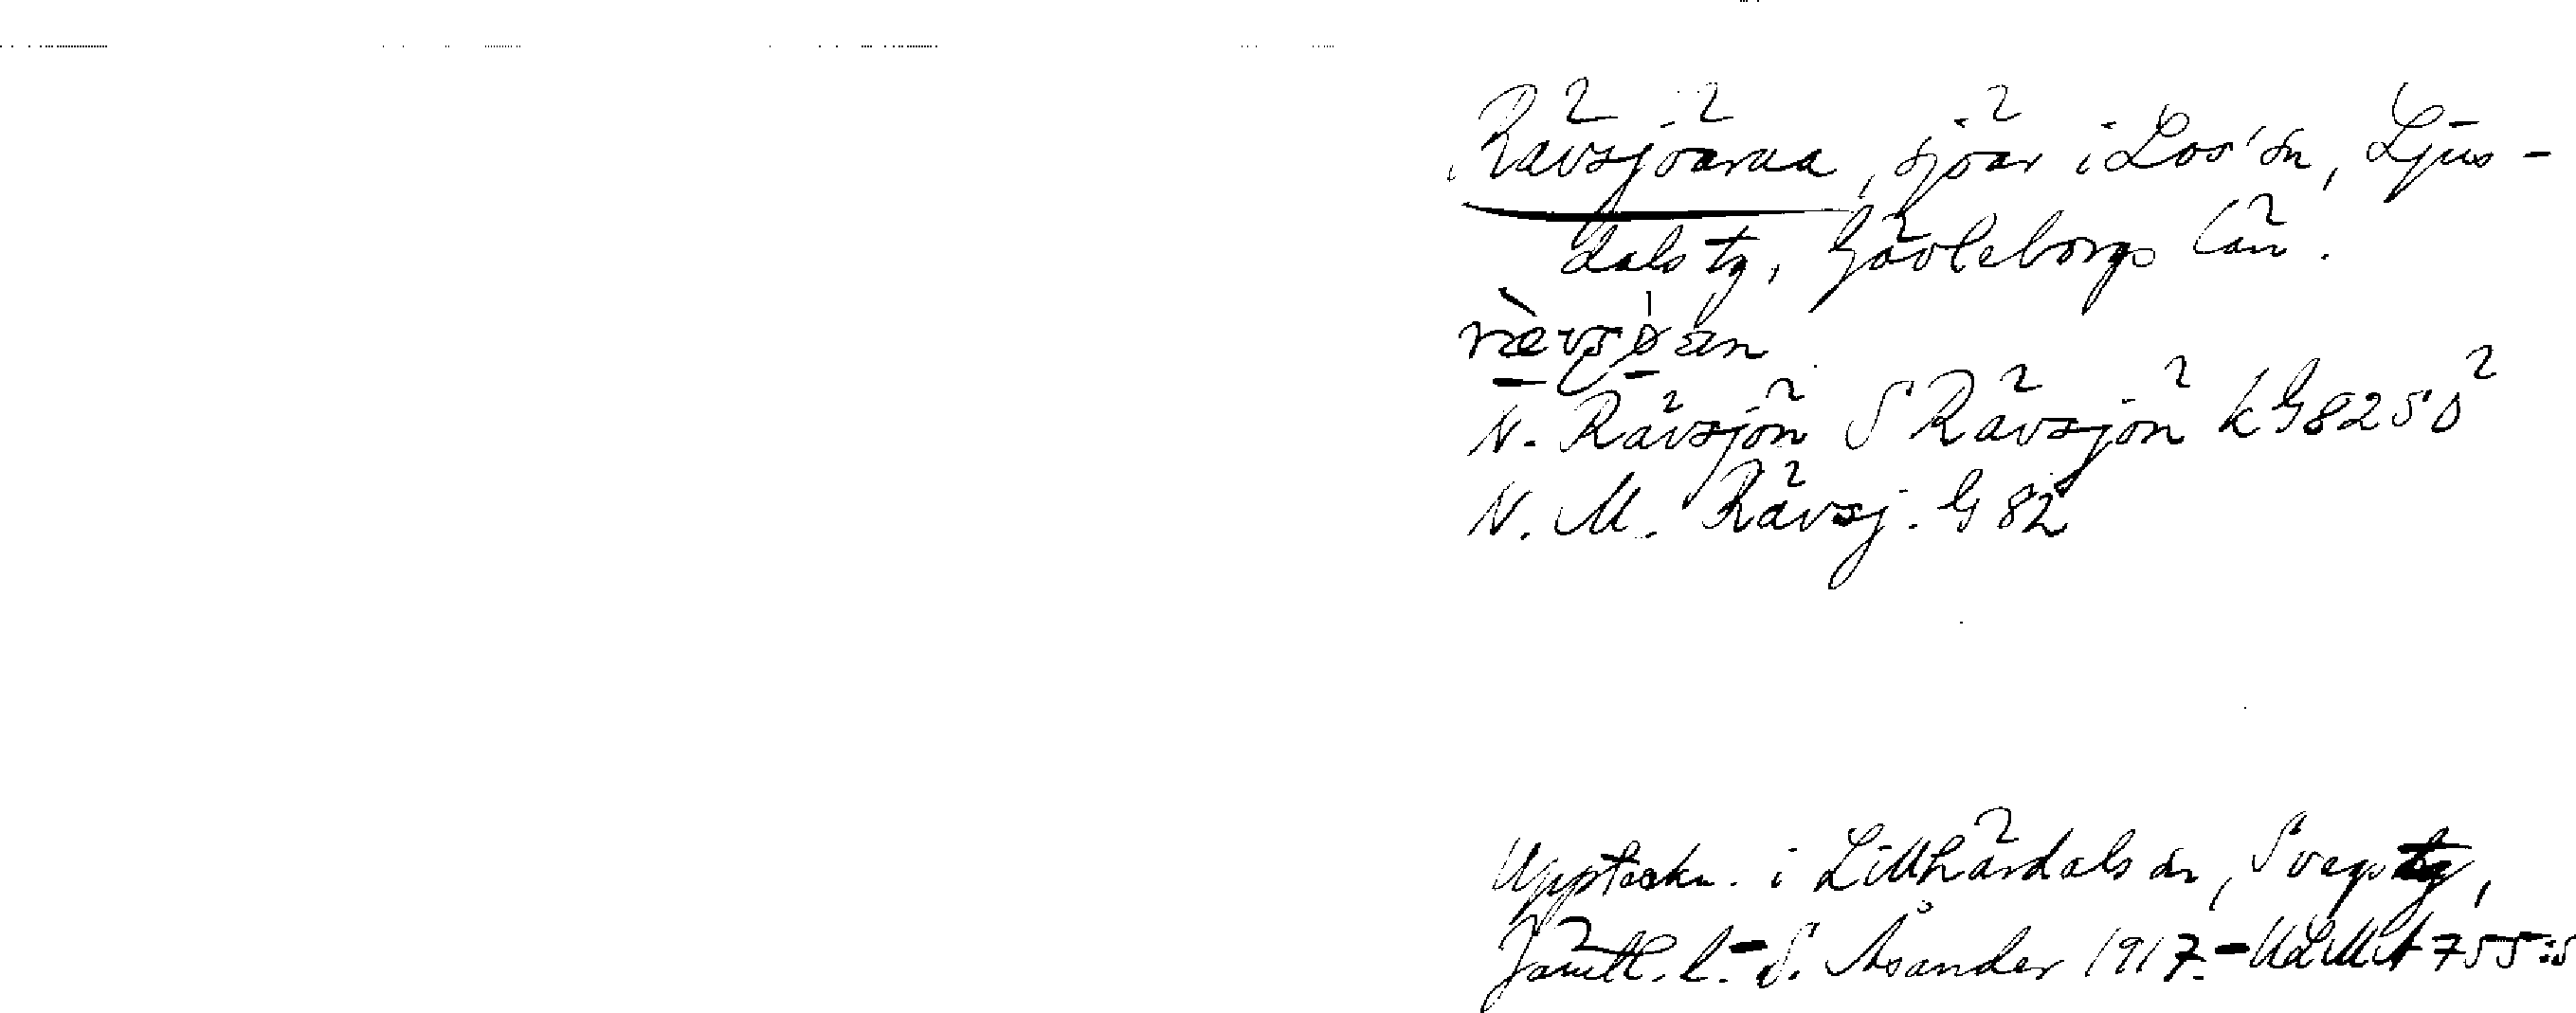 Rävsjöarna, sjöar i Los' sn, Ljus-
dals tg, Gävleborgs län.
N. Rävsjön S Rävsjön k G 82 SÖ
N. M. Rävsj. G 82
Uppteckn. i Lillhärdals sn, Svegs tg,
Jämtl. l. - S. Åsander 1917. - ULMA 755:5